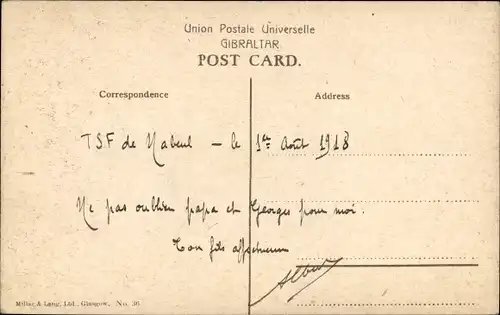 Union Postale Universelle
GIBRALTAR.
POST CARD.
Correspondence
Address
TSF de Nabeul – le 1er Août 1918
Ne pas oublier papa et Georges pour moi.
Ton fils affectueux
Albert
Millar & Lang, Ltd., Glasgow, No. 36